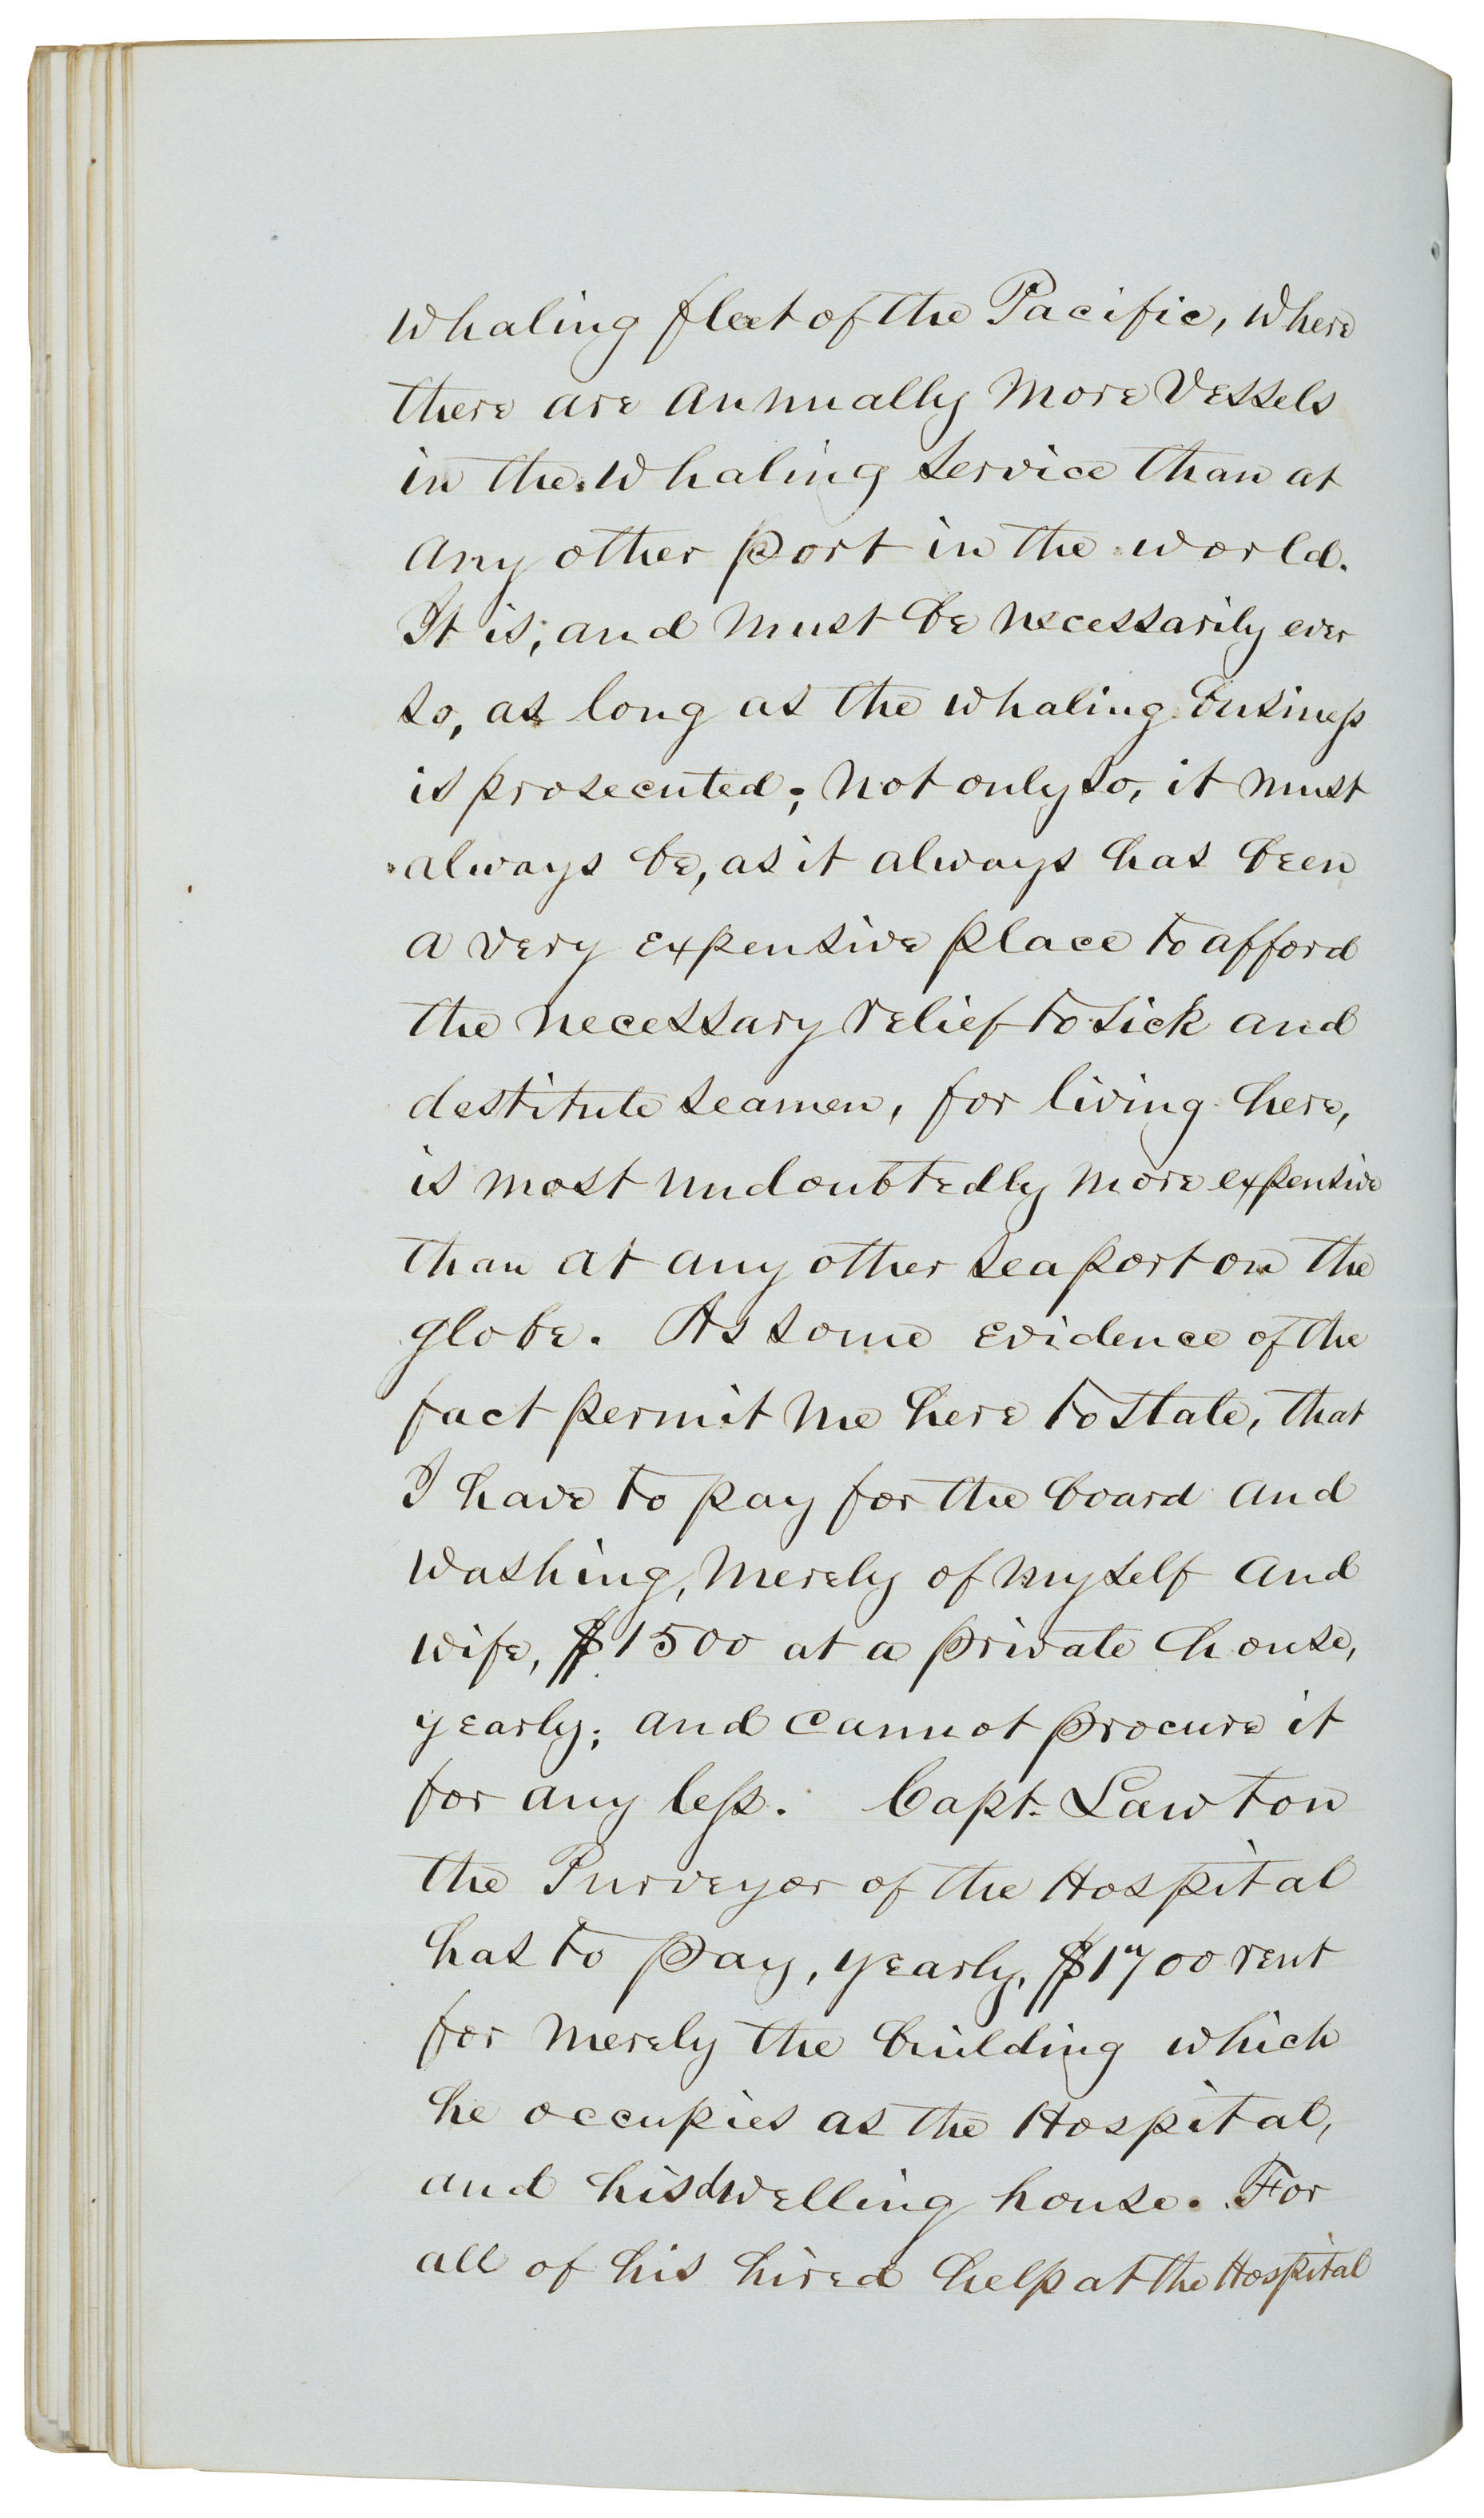 whaling fleet of the Pacific, where
there are annually more vessels
in the whaling service than at
any other port in the world.
It is, and must be necessarily ever
so, as long as the whaling business
is prosecuted; not only so, it must
always be, as it always has been
a very expensive place to afford
the necessary relief to sick and
destitute seamen, for living here,
is most undoubtedly more expensive
than at any other seaport on the
globe. As some evidence of the
fact permit me here to state, that
I have to pay for the board and
washing, merely of myself and
wife, $1500 at a private house,
yearly; and cannot procure it
for any less. Capt. Lawton
the Purveyor of the Hospital
has to pay, yearly, $1700 rent
for merely the building which
he occupies as the Hospital,
and his dwelling house. For
all of his hired help at the Hospital